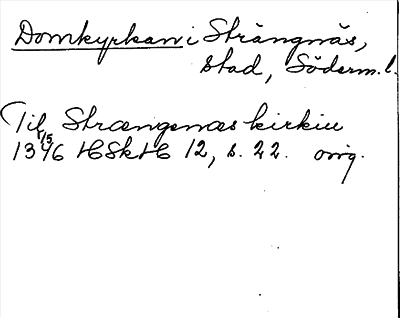 Domkyrkan i Strängnäs,
stad, Söderm.l.
Til Strængenæs kirkiu
1346 1/5 HSkH 12, s. 22. orig.